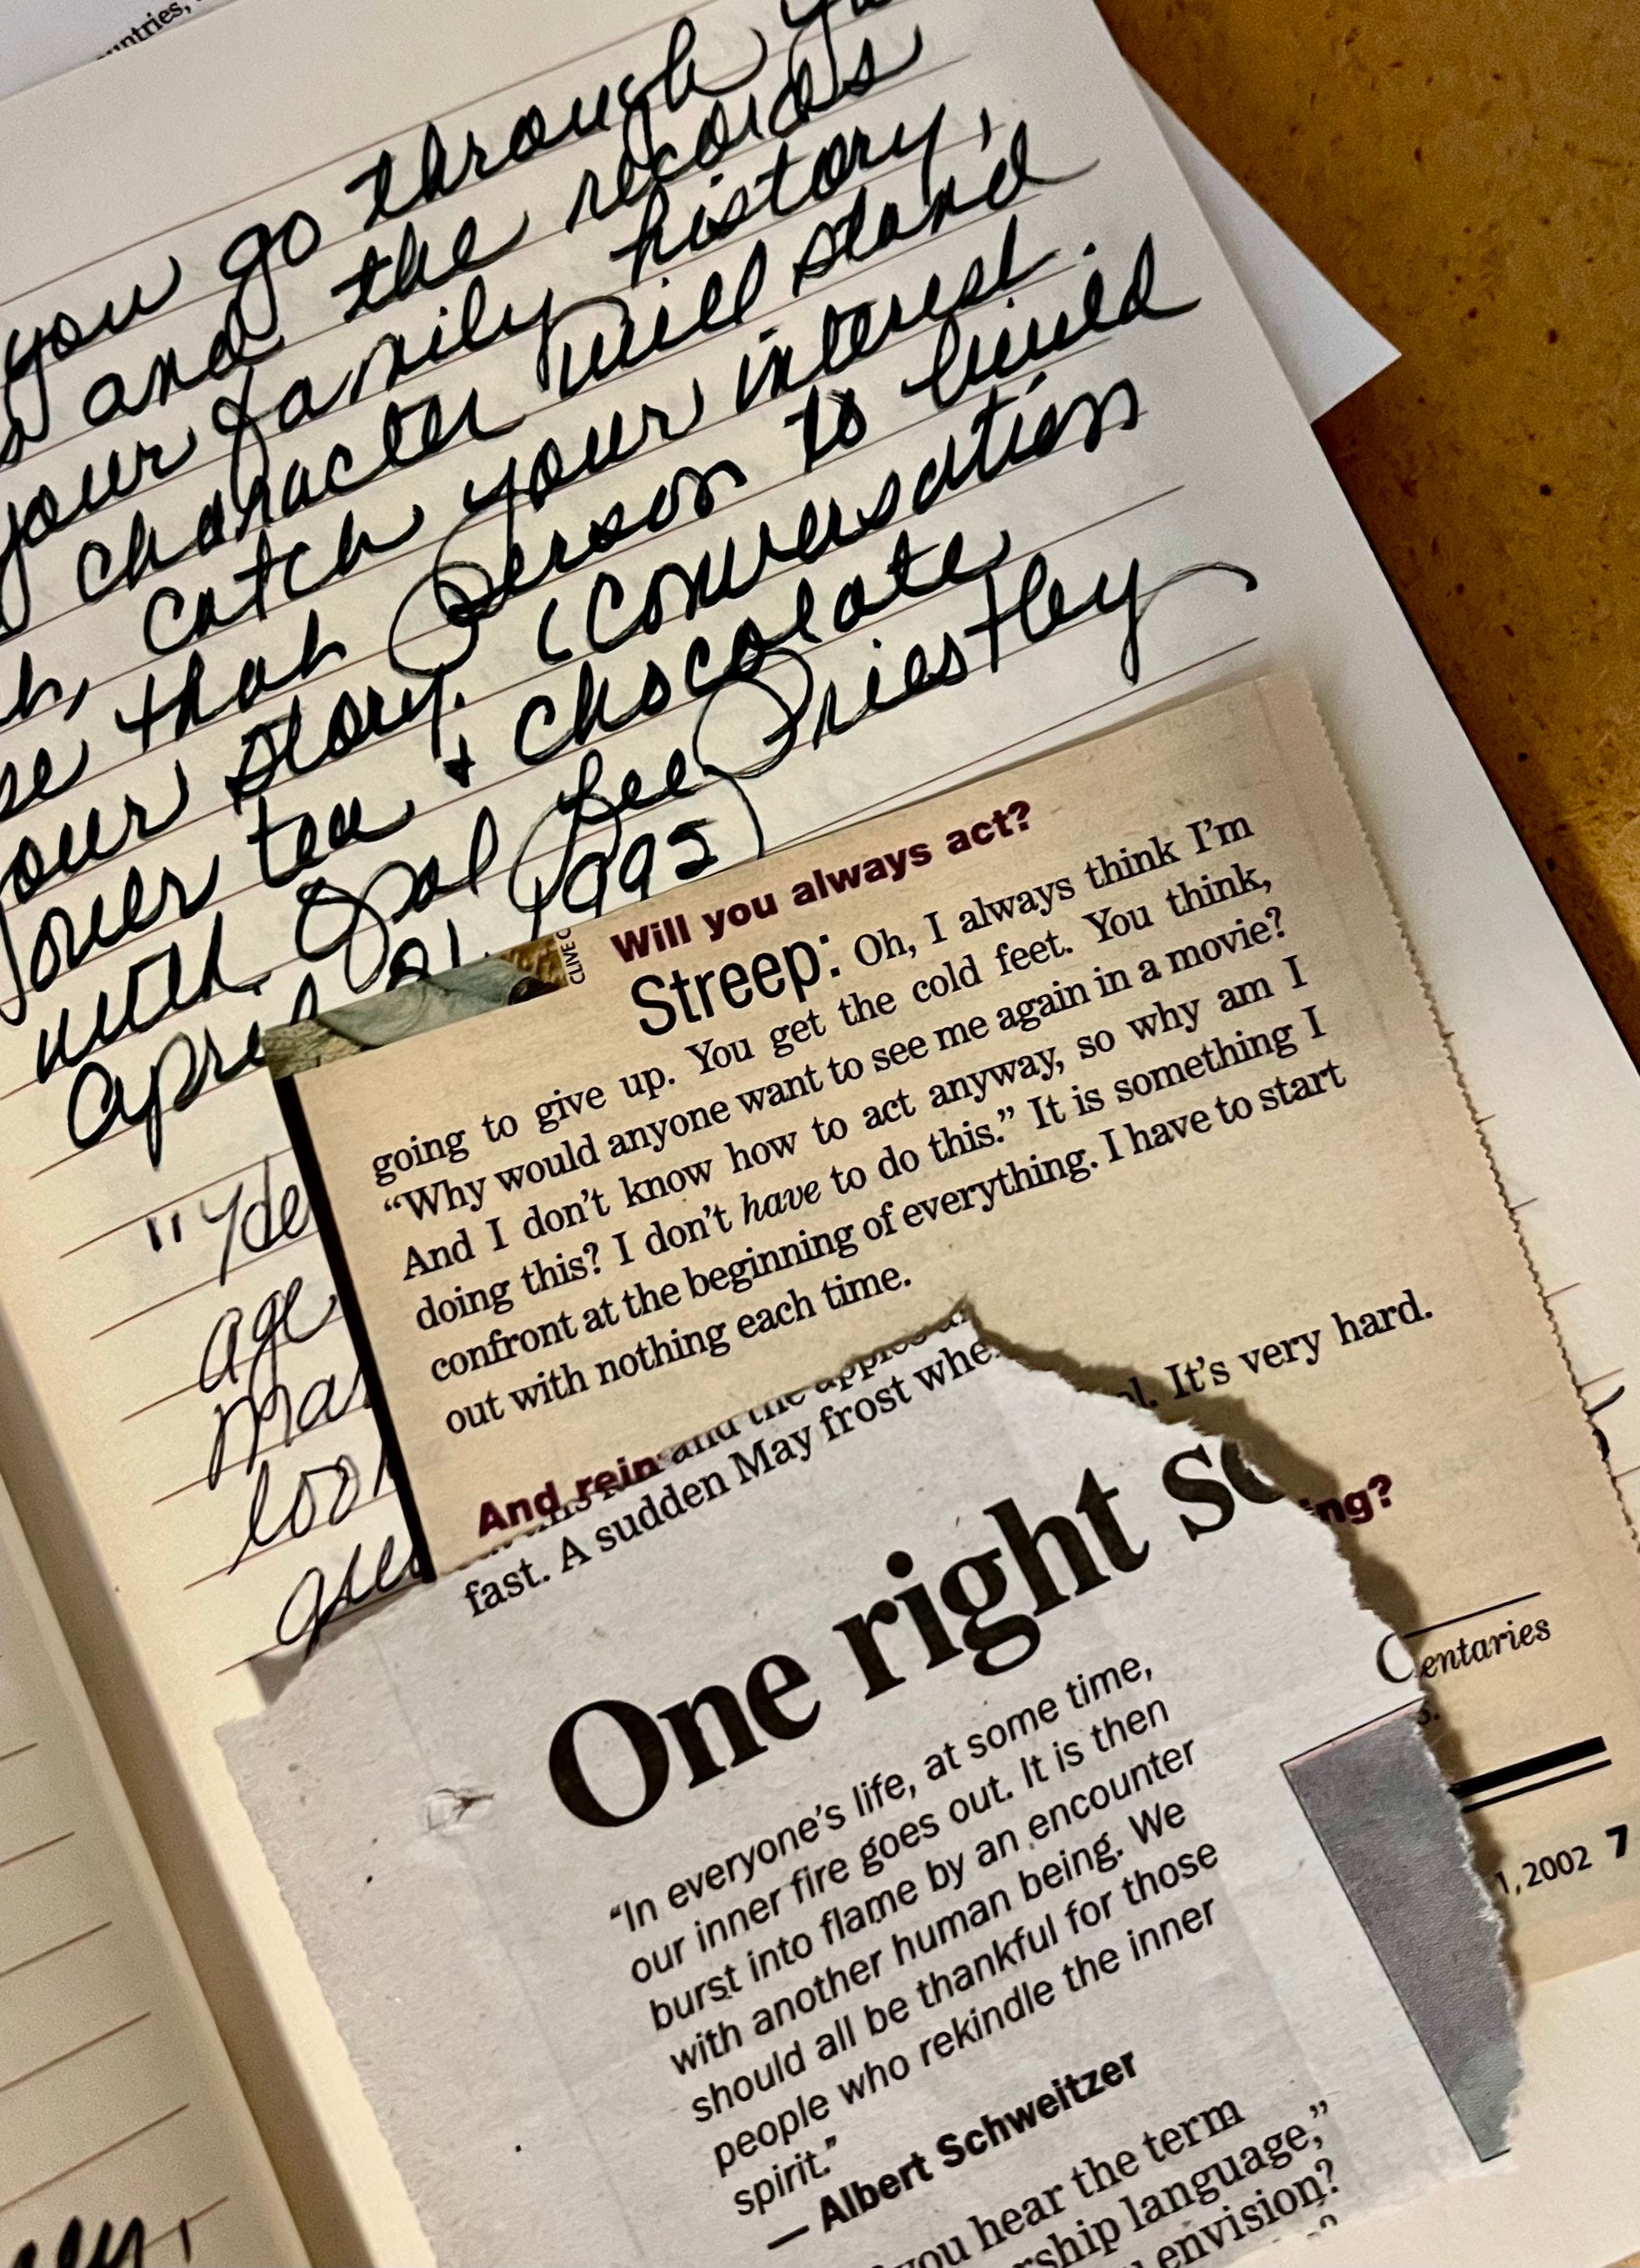 untries,
you go through
and the records
your family history,
character will stand
catch your interest.
that Person to build
our story. (Conversation
over tea + chocolate
with Opal Lee Priestley
April 21, 1992)
"Yde
age
Mar
loo
que
CLIVE
Will you always act?
Streep: Oh, I always think I'm
going to give up. You get the cold feet. You think,
“Why would anyone want to see me again in a movie?
And I don't know how to act anyway, so why am I
doing this? I don't have to do this.” It is something I
confront at the beginning of everything. I have to start
out with nothing each time.
It's very hard.
And rein
ing?
entaries
1, 2002 7
and the apples
fast. A sudden May frost whe
One right so
“In everyone's life, at some time,
our inner fire goes out. It is then
burst into flame by an encounter
with another human being. We
should all be thankful for those
people who rekindle the inner
spirit.”
— Albert Schweitzer
you hear the term
rship language,”
envision?
ey,